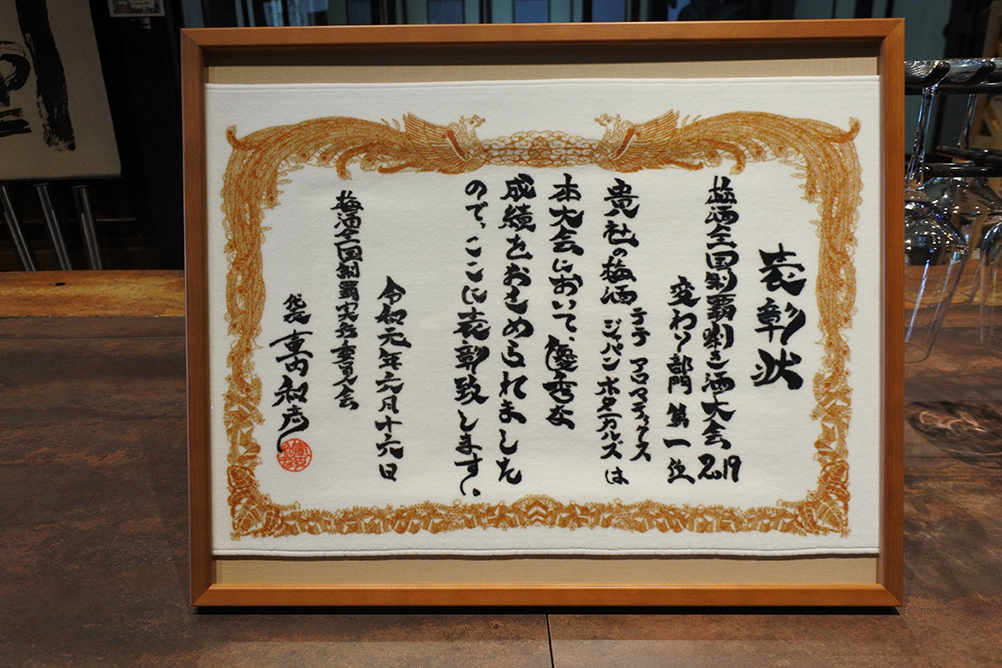 表彰状
梅酒全国制覇利き酒大会2019
変わり部門 第一位
貴社の梅酒 テテ アロマティックス
ジャパン ボタニカルズ は
本大会において、優秀な
成績をおさめられました
ので、ここに表彰致します。
令和元年六月十六日
梅酒全国制覇実行委員会